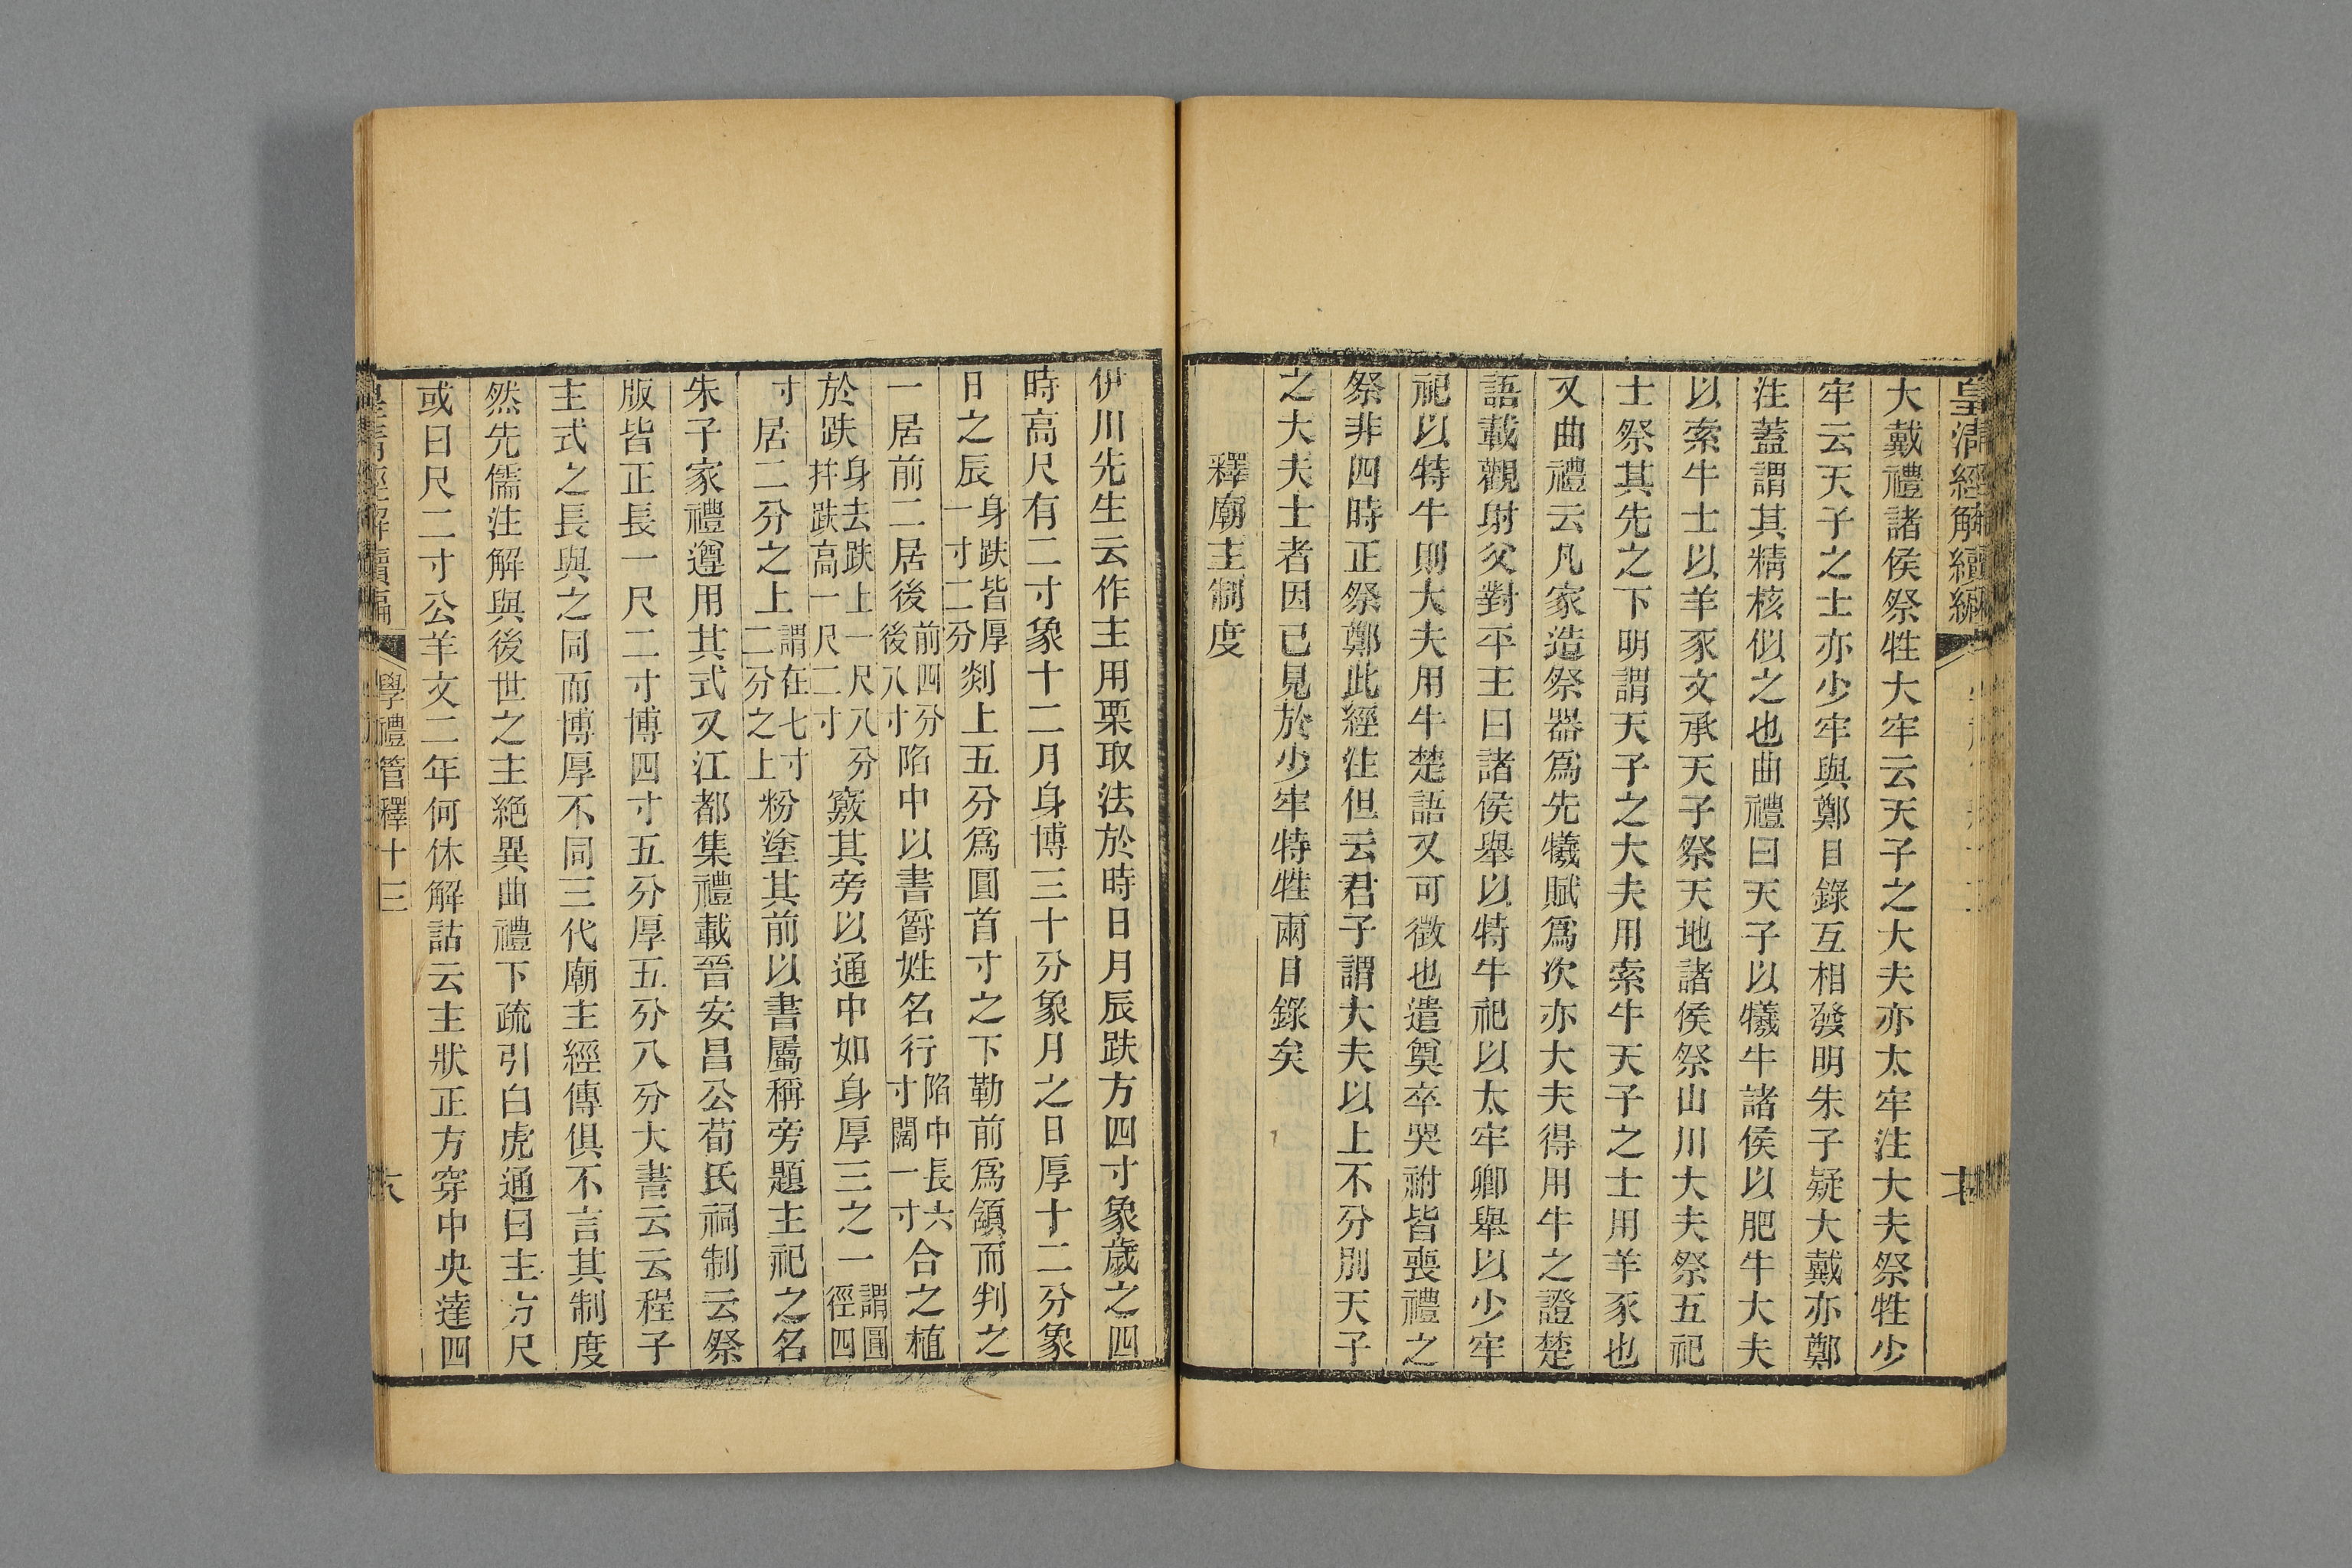 皇清經解續編
大戴禮諸侯祭牲大牢云天子之大夫亦太牢注大夫祭牲少
牢云天子之士亦少牢與鄭目錄互相發明朱子疑大戴亦鄭
注蓋謂其精核似之也曲禮曰天子以犧牛諸侯以肥牛大夫
以索牛士以羊豕文承天子祭天地諸侯祭山川大夫祭五祀
士祭其先之下明謂天子之大夫用索牛天子之士用羊豕也
又曲禮云凡家造祭器爲先犧賦爲次亦大夫得用牛之證楚
語載觀射父對平王曰諸侯舉以特牛祀以太牢卿舉以少牢
祀以特牛則大夫用牛楚語又可徵也遣奠卒哭祔皆喪禮之
祭非四時正祭鄭此經注但云君子謂大夫以上不分別天子
之大夫士者因已見於少牢特牲兩目錄矣
釋廟主制度
伊川先生云作主用栗取法於時日月辰趺方四寸象歲之四
時高尺有二寸象十二月身博三十分象月之日厚十二分象
日之辰身趺皆厚一寸二分剡上五分爲圓首寸之下勒前爲頷而判之
一居前二居後前四分後八寸陷中以書爵姓名行陷中長六寸闊一寸合之植
於趺身去趺上一尺八分并趺高一尺二寸竅其旁以通中如身厚三之一謂圓徑四
寸居二分之上謂在七寸二分之上粉塗其前以書屬稱旁題主祀之名
朱子家禮遵用其式又江都集禮載晉安昌公荀氏祠制云祭
版皆正長一尺二寸博四寸五分厚五分八分大書云云程子
主式之長與之同而博厚不同三代廟主經傳俱不言其制度
然先儒注解與後世之主絶異曲禮下疏引白虎通曰主方尺
或曰尺二寸公羊文二年何休解詁云主狀正方穿中央達四
皇清經解續編 學禮管釋十三 六